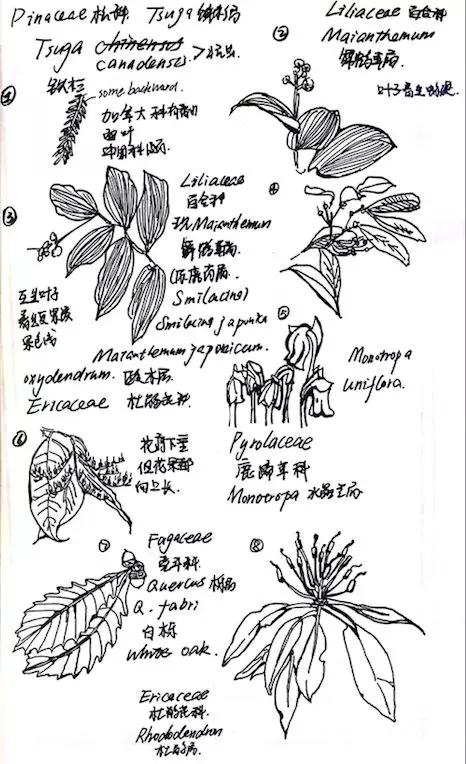 Pinaceae 松科. Tsuga 铁杉属
Tsuga chinensis
canadensis.
① 铁杉
some backward.
加拿大
Liliaceae 百合科
② Maianthemum
舞鹤草属.
③ Liliaceae
百合科
Maianthemum
舞鹤草属
(原鹿药属
Smilacina)
Smilacina japonica
Maianthemum japonicum.
互生叶子
④
⑤ Monotropa
uniflora.
Pyrolaceae
鹿蹄草科
Monotropa 水晶兰属
oxydendrum. 酸木属
Ericaceae 杜鹃花科
⑥ 花序下垂
但花果都
向上长.
⑦ Fagaceae
壳斗科.
Quercus 栎属
Q. fabri
白栎
White oak.
⑧
Ericaceae
杜鹃花科.
Rhododendron
杜鹃属.